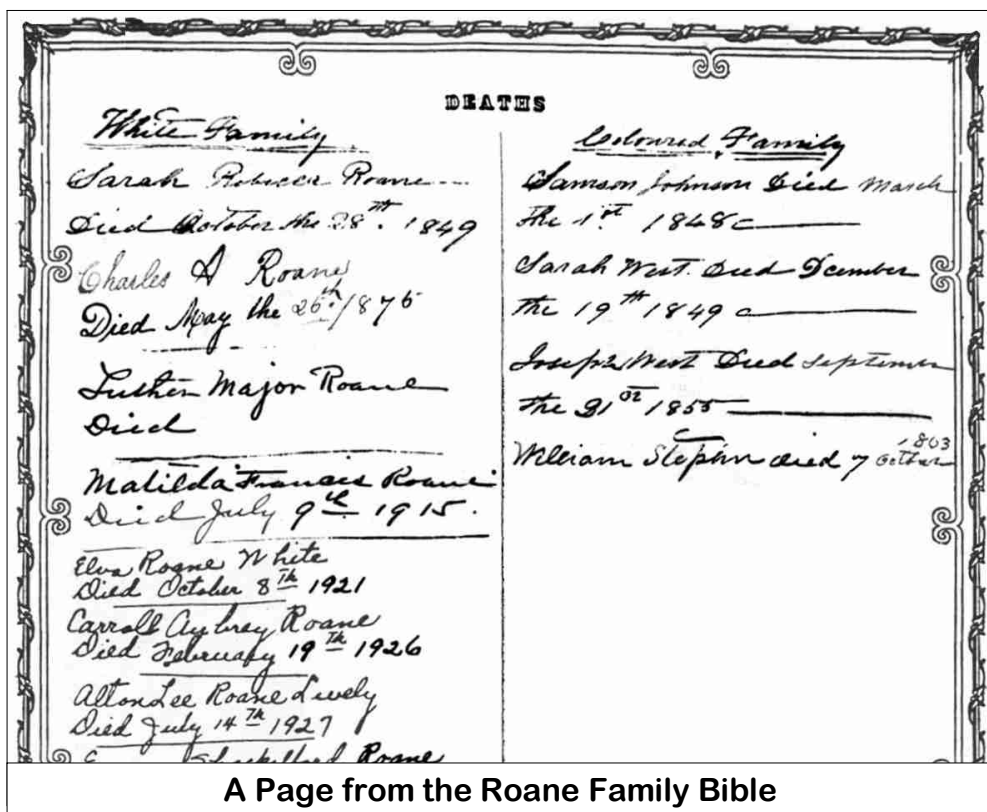 DEATHS
White Family
Sarah Rebecca Roane
Died October the 28th. 1849
Charles A Roane
Died May the 26th. 1875
Luther Major Roane
Died
Matilda Francis Roane
Died July 9th 1915.
Elva Roane White
Died October 8th 1921
Carroll Aubrey Roane
Died February 19th 1926
Alton Lee Roane Lively
Died July 14th 1927
Shackelford Roane
Coloured Family
Samson Johnson Died March
the 1st 1848
Sarah West. Died Dcember
the 19th 1849
Joseph West Died September
the 21st 1855
William Stephen died 7 October
1863
A Page from the Roane Family Bible